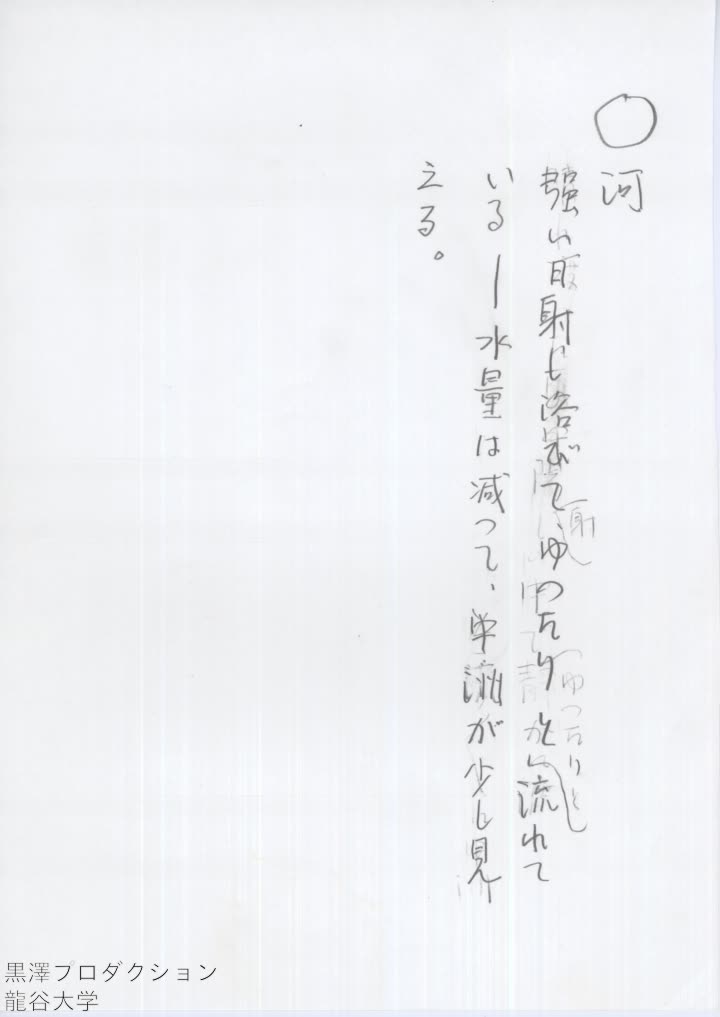 ○
河
強い日射しを浴びて、ゆったりと流れて
いる―水量は減って、中洲が少し見
える。
黒澤プロダクション
龍谷大学